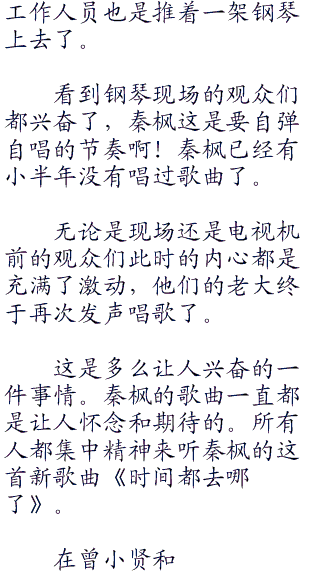 工作人员也是推着一架钢琴
上去了。
看到钢琴现场的观众们
都兴奋了，秦枫这是要自弹
自唱的节奏啊！秦枫已经有
小半年没有唱过歌曲了。
无论是现场还是电视机
前的观众们此时的内心都是
充满了激动，他们的老大终
于再次发声唱歌了。
这是多么让人兴奋的一
件事情。秦枫的歌曲一直都
是让人怀念和期待的。所有
人都集中精神来听秦枫的这
首新歌曲《时间都去哪
了》。
在曾小贤和